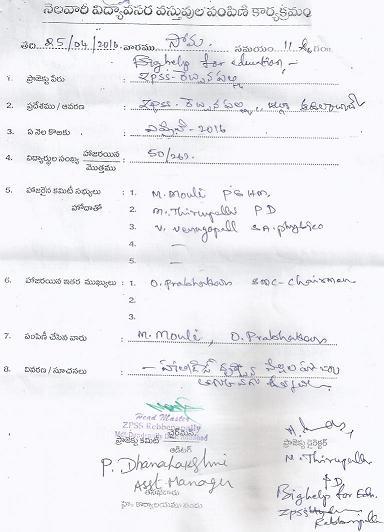 నెలవారీ విద్యావసర వస్తువుల పంపిణీ కార్యక్రమం
తేది: 25/04/2016 వారము సోమ సమయం 11
Bighelp for education
1. ప్రాజెక్టు పేరు : ZPSS-రెబ్బనపల్లి
2. ప్రదేశము / ఆవరణ : ZPSS-రెబ్బనపల్లి, జిల్లా ఆదిలాబాద్
3. ఏ నెల కొరకు : ఏప్రిల్-2016
4. విద్యార్థుల సంఖ్య హాజరయిన / మొత్తము : 50/262
5. హాజరైన కమిటీ సభ్యులు : 1. M. Mouli PG HM
హోదాతో 2. M. Thirupathi PD
3. V. Venugopal S.A. Physics
4. —
5. —
6. హాజరయిన ఇతర ముఖ్యులు : 1. O. Prabhakar SMC-Chairman
2.
3.
7. పంపిణీ చేసిన వారు : M. Mouli, O. Prabhakar
8. వివరణ / సూచనలు :
Head Master
ZPSS Rebbanapally
ప్రాజెక్టు కమిటీ చైర్మన్
ఆడిటర్
P. Dhanalaxshmi
Asst Manager
తనిఖీదారు
హెడ్ కార్యాలయము నందు
ప్రాజెక్టు డైరెక్టర్
M. Thirupathi
PD
Bighelp for Edn.
ZPSS
Rebbanapalli